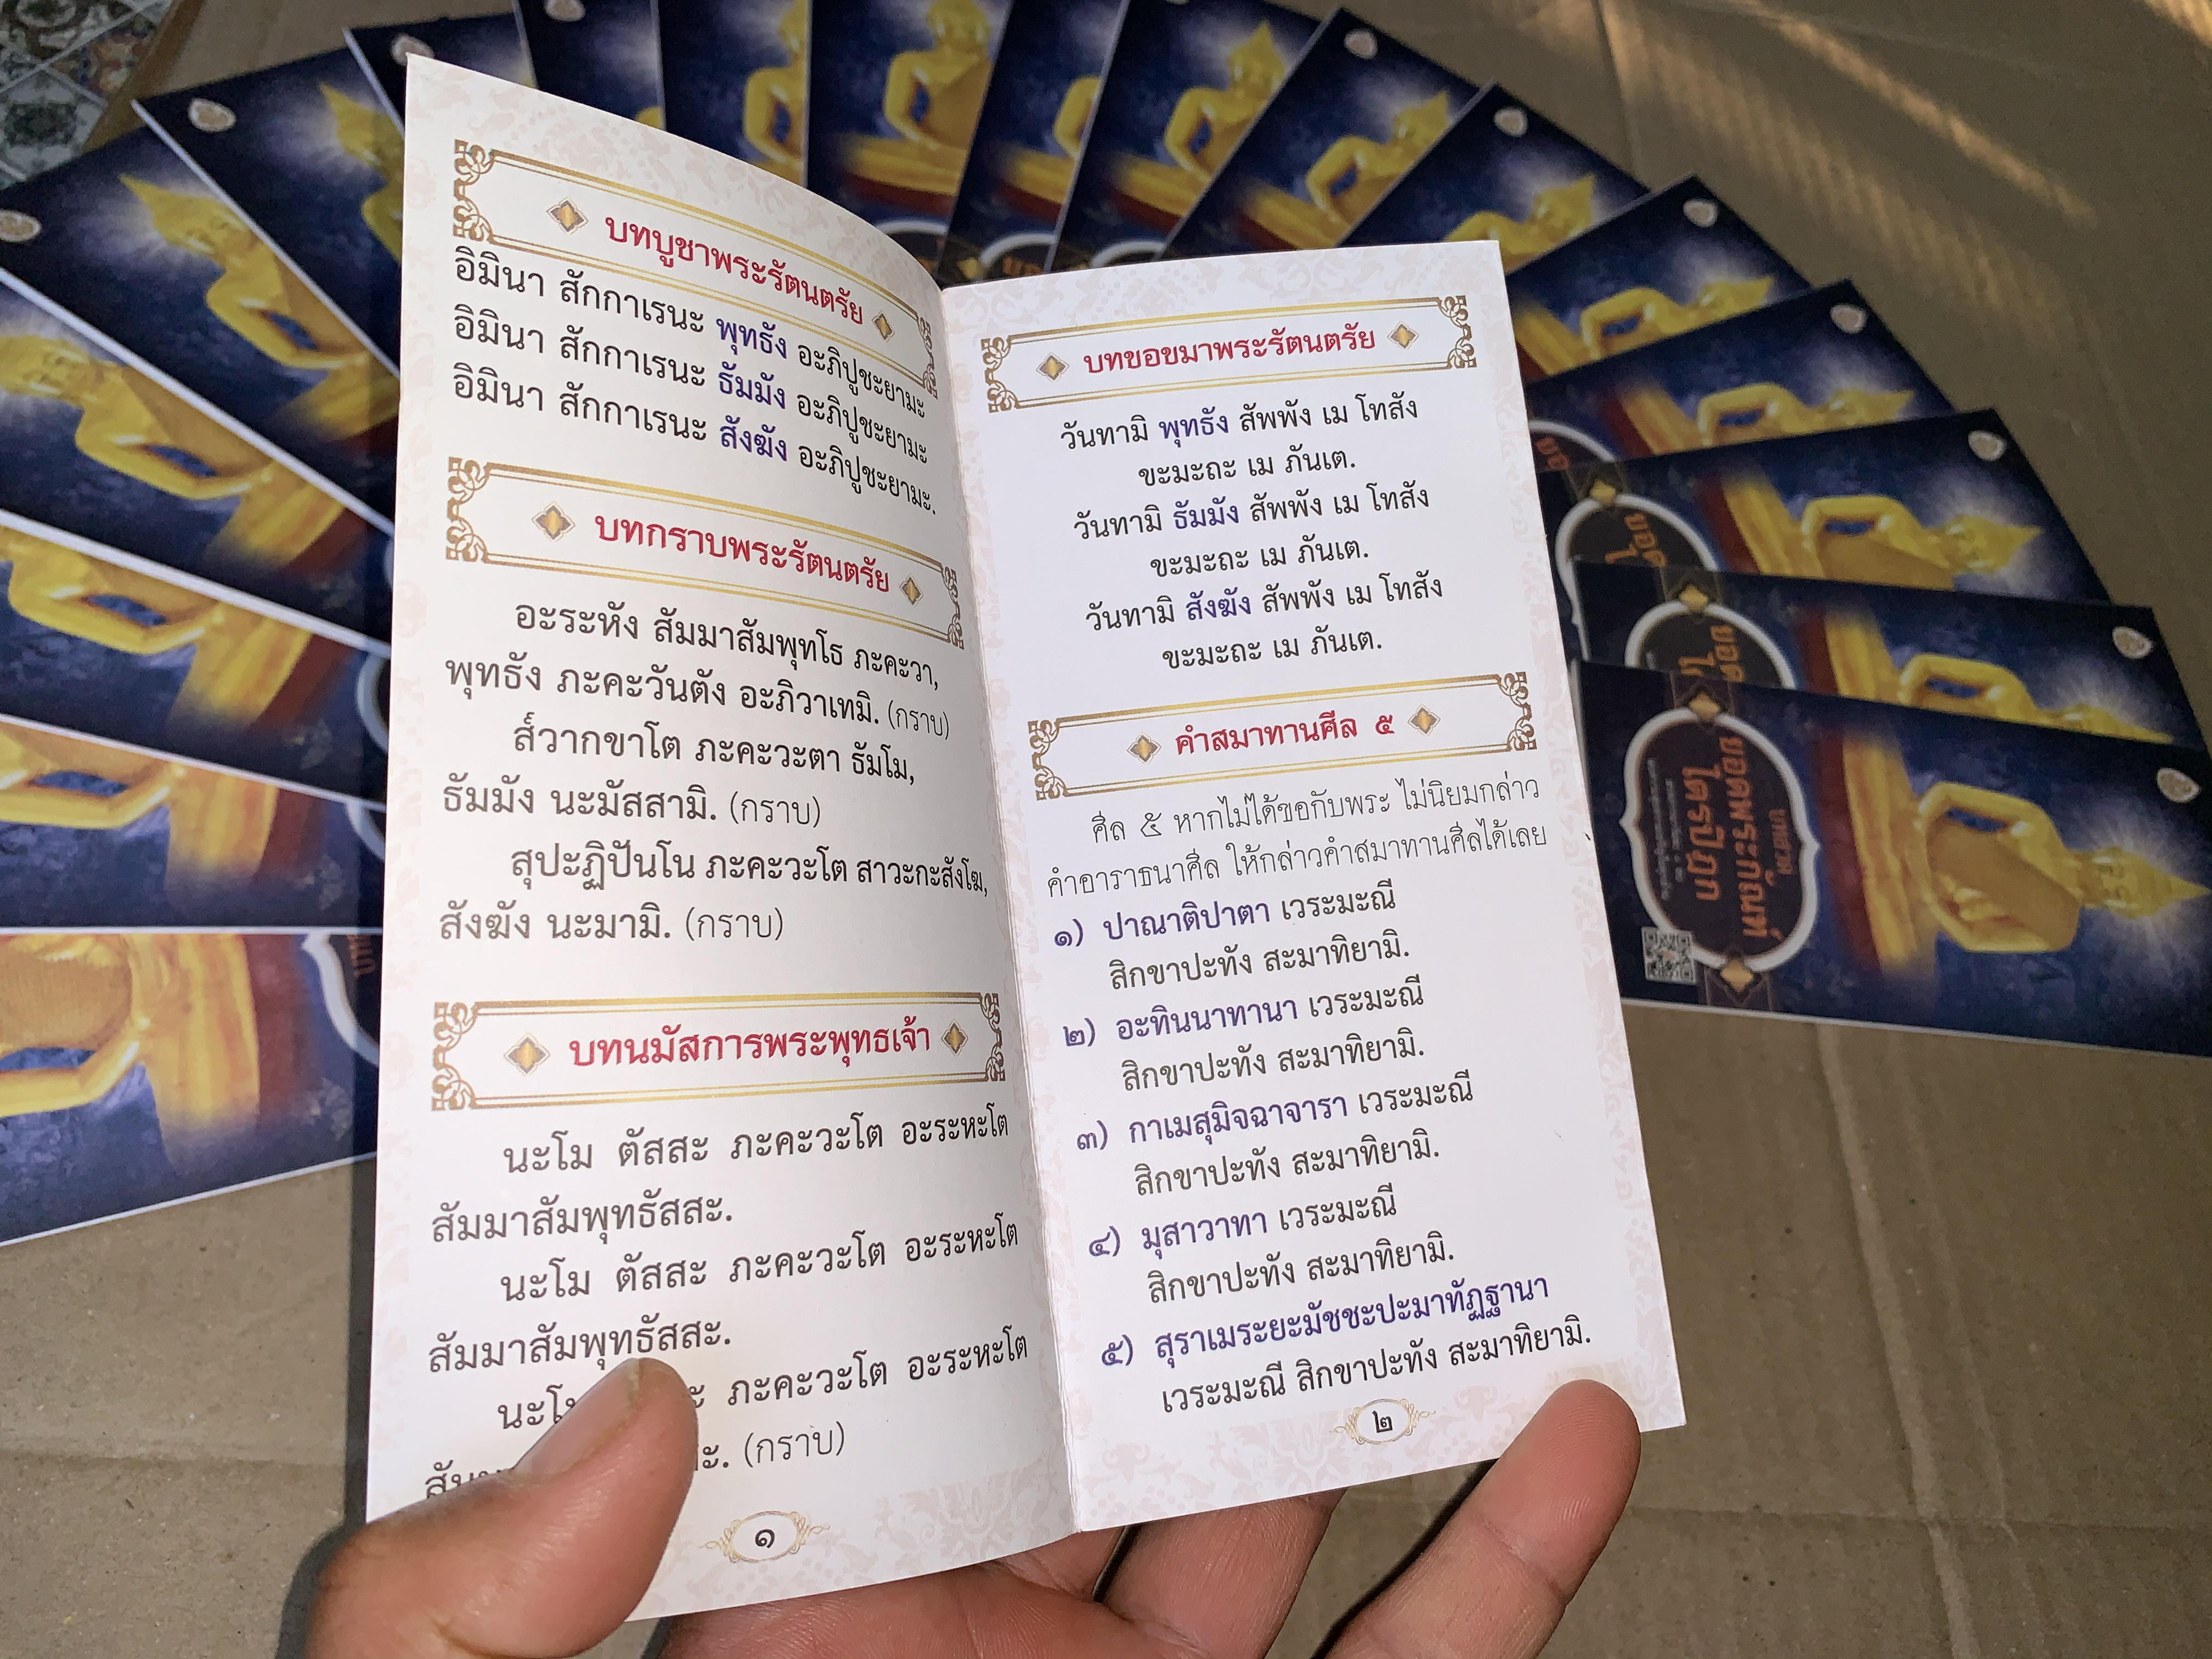 บทบูชาพระรัตนตรัย
อิมินา สักกาเรนะ พุทธัง อะภิปูชะยามะ
อิมินา สักกาเรนะ ธัมมัง อะภิปูชะยามะ
อิมินา สักกาเรนะ สังฆัง อะภิปูชะยามะ.
บทกราบพระรัตนตรัย
อะระหัง สัมมาสัมพุทโธ ภะคะวา,
พุทธัง ภะคะวันตัง อะภิวาเทมิ. (กราบ)
ส๎วากขาโต ภะคะวะตา ธัมโม,
ธัมมัง นะมัสสามิ. (กราบ)
สุปะฏิปันโน ภะคะวะโต สาวะกะสังโฆ,
สังฆัง นะมามิ. (กราบ)
บทนมัสการพระพุทธเจ้า
นะโม ตัสสะ ภะคะวะโต อะระหะโต
สัมมาสัมพุทธัสสะ.
นะโม ตัสสะ ภะคะวะโต อะระหะโต
สัมมาสัมพุทธัสสะ.
ภะคะวะโต อะระหะโต
(กราบ)
๑
บทขอขมาพระรัตนตรัย
วันทามิ พุทธัง สัพพัง เม โทสัง
ขะมะถะ เม ภันเต.
วันทามิ ธัมมัง สัพพัง เม โทสัง
ขะมะถะ เม ภันเต.
วันทามิ สังฆัง สัพพัง เม โทสัง
ขะมะถะ เม ภันเต.
คำสมาทานศีล ๕
ศีล ๕ หากไม่ได้ขอกับพระ ไม่นิยมกล่าว
คำอาราธนาศีล ให้กล่าวคำสมาทานศีลได้เลย
๑) ปาณาติปาตา เวระมะณี
สิกขาปะทัง สะมาทิยามิ.
๒) อะทินนาทานา เวระมะณี
สิกขาปะทัง สะมาทิยามิ.
๓) กาเมสุมิจฉาจารา เวระมะณี
สิกขาปะทัง สะมาทิยามิ.
๔) มุสาวาทา เวระมะณี
สิกขาปะทัง สะมาทิยามิ.
๕) สุราเมระยะมัชชะปะมาทัฏฐานา
เวระมะณี สิกขาปะทัง สะมาทิยามิ.
๒
บทสวด
ยอดพระกัณฑ์
ไตรปิฎก